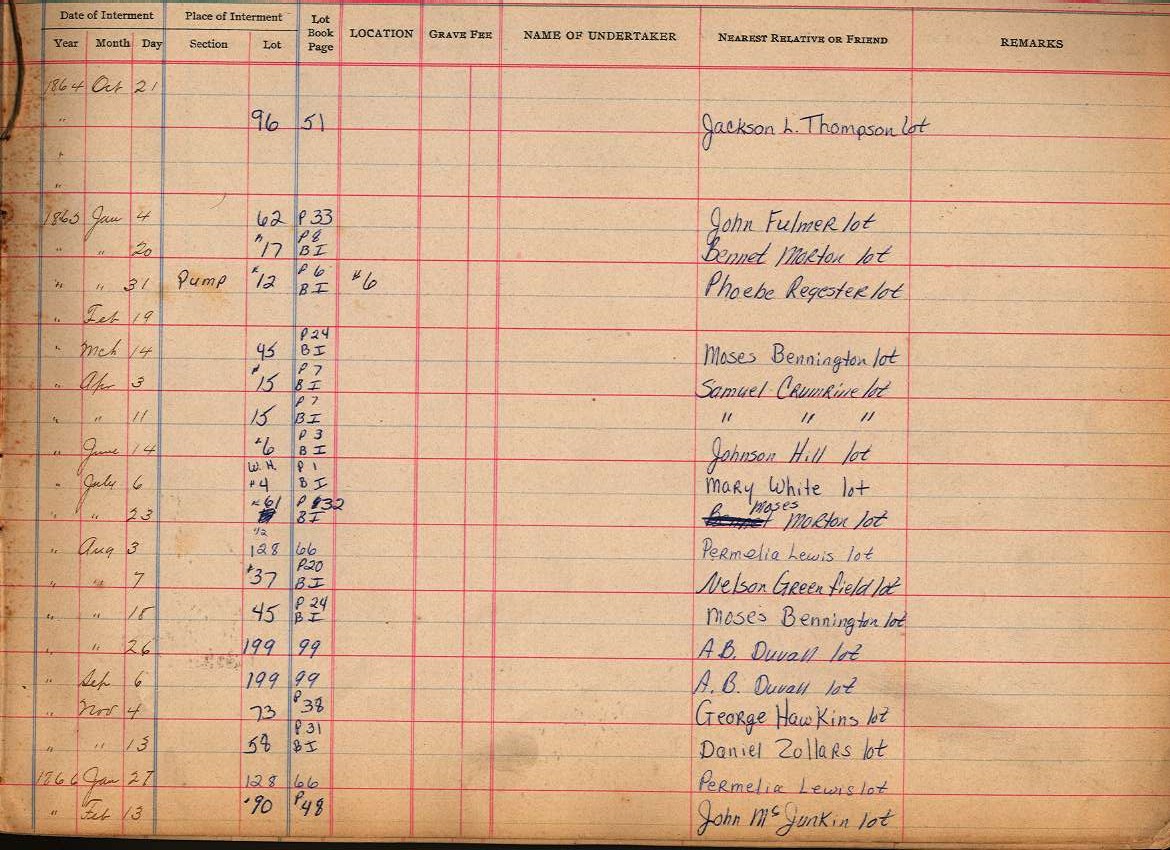 Date of Interment Place of Interment Lot Book Page LOCATION GRAVE FEE NAME OF UNDERTAKER NEAREST RELATIVE OR FRIEND REMARKS
Year Month Day Section Lot
1864 Oct 21
" 96 51 Jackson L. Thompson lot
"
"
1865 Jan 4 62 P 33 John Fulmer lot
" " 20 #17 P8 BI Bennet Morton lot
" " 31 Pump #12 P 6 BI #6 Phoebe Regester lot
" Feb 19
" Mch 14 45 P24 BI Moses Bennington lot
" Apr 3 #15 P 7 BI Samuel Crumrine lot
" " 11 15 P 7 BI " " "
" June 14 #6 P 3 BI Johnson Hill lot
" July 6 W.H. #4 P 1 BI Mary White lot
" " 23 #61 P 32 BI Moses Morton lot
" Aug 3 1/2 128 66 Permelia Lewis lot
" " 7 #37 P20 BI Nelson Greenfield lot
" " 18 45 P 24 BI Moses Bennington lot
" " 26 199 99 A.B. Duvall lot
" Sep 6 199 99 A.B. Duvall lot
" Nov 4 73 P 38 George Hawkins lot
" " 13 58 P31 BI Daniel Zollars lot
1866 Jan 27 128 66 Permelia Lewis lot
" Feb 13 #90 P48 John McJunkin lot